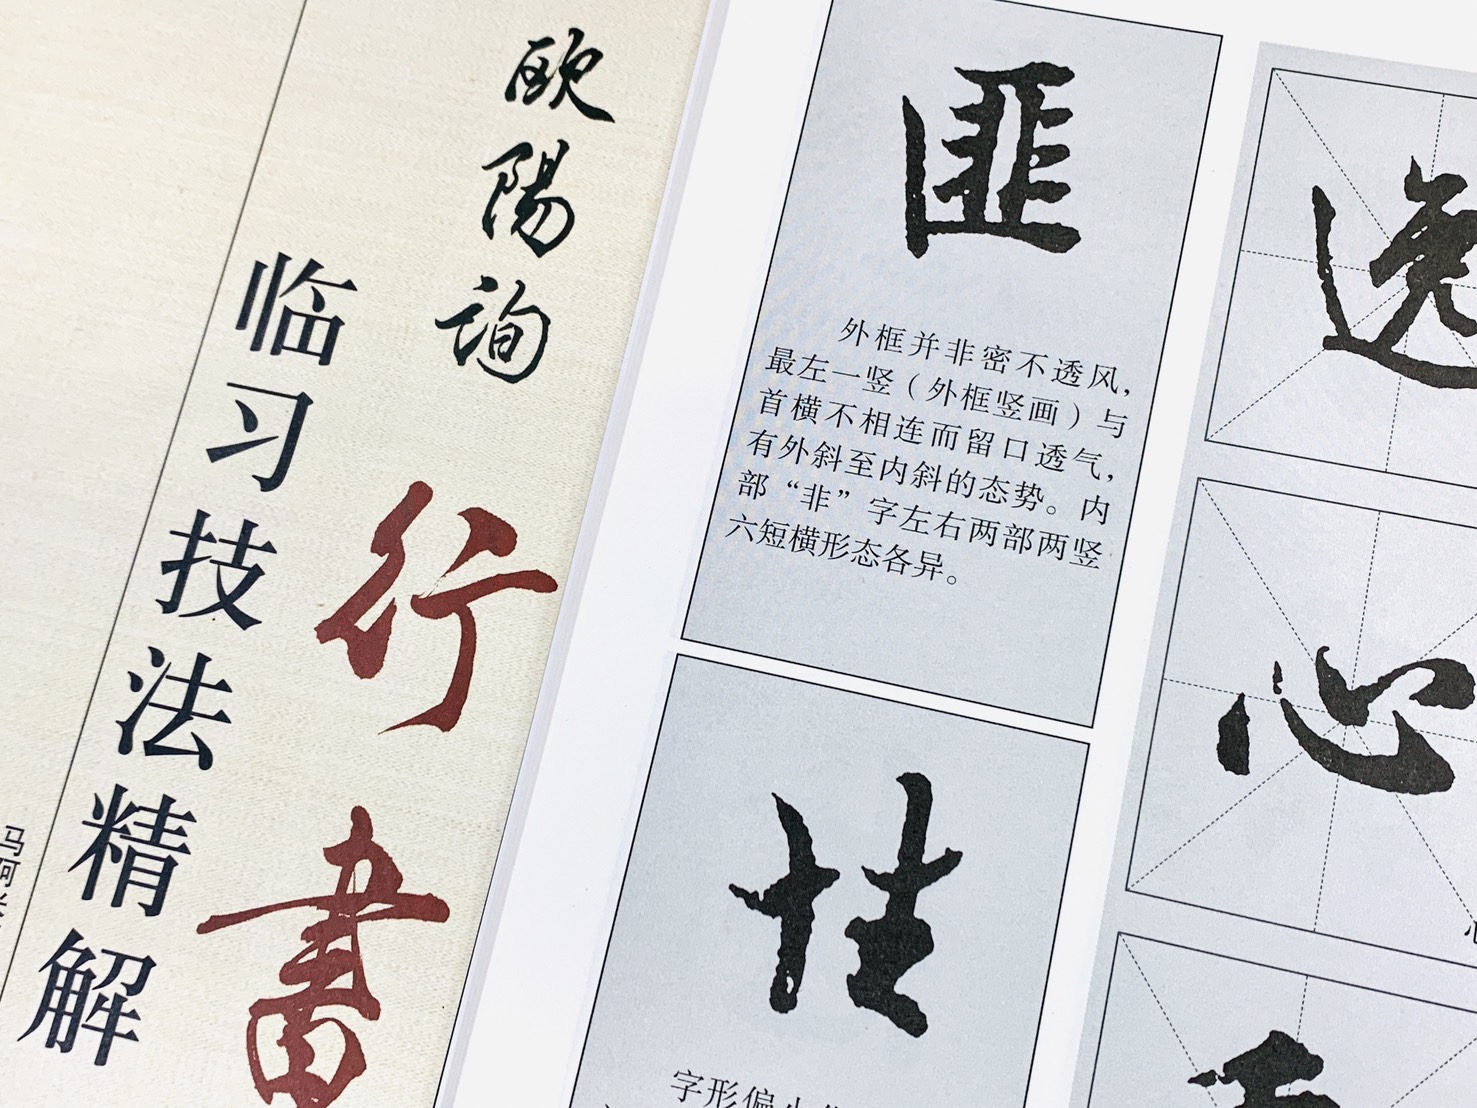 欧陽詢
行書
临习技法精解
匪
外框并非密不透风，
最左一竖（外框竖画）与
首横不相连而留口透气，
有外斜至内斜的态势。内
部“非”字左右两部两竖
六短横形态各异。
性
字形偏
逸
心